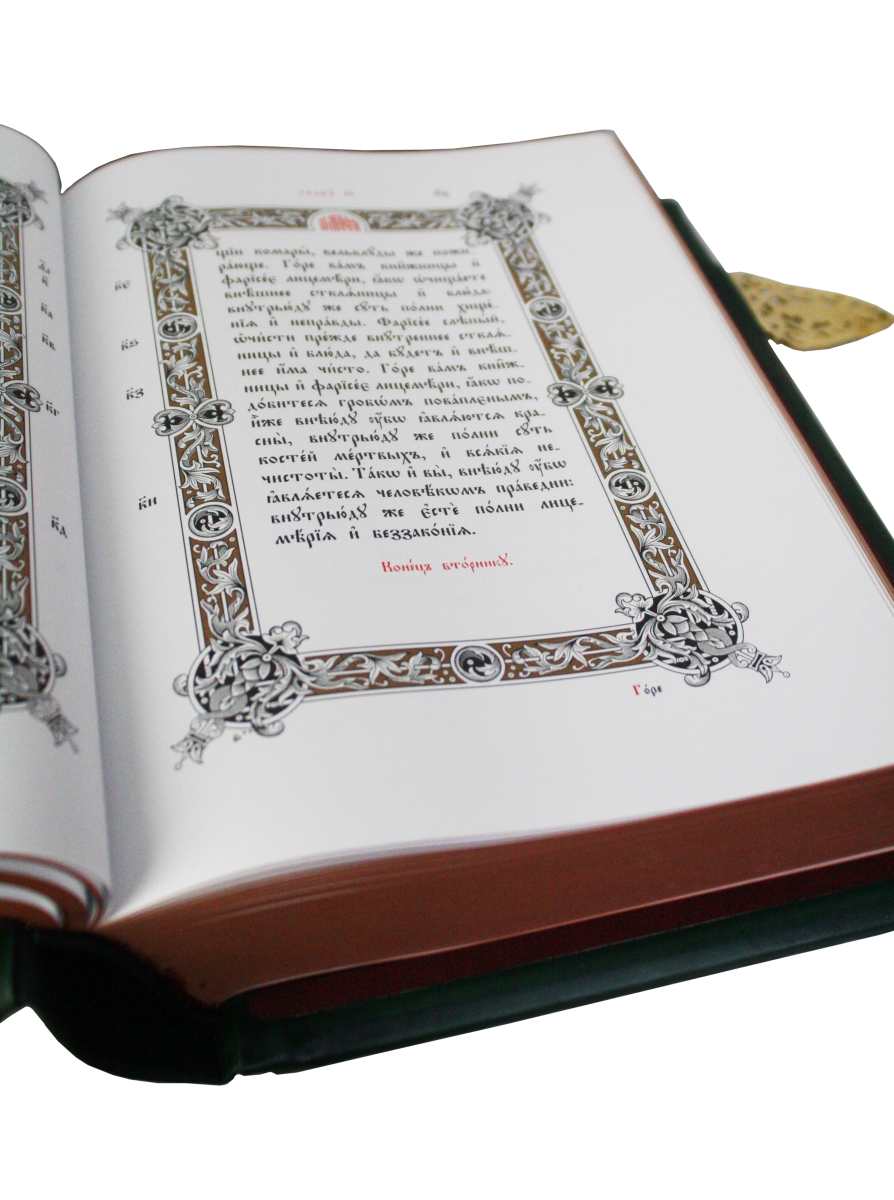 щїи комары̀, вельблꙋ́ды же пожи-
ра́юще. Го́ре ва́мъ кни́жницы и҆
фарїсе́є лицемѣ́ри, ꙗ҆́кѡ ѡ҆чища́ете
внѣ́шнее стклѧ́ницы и҆ блю́да:
внꙋтрьꙋ́дꙋ же сꙋ́ть по́лни хище́-
нїѧ и҆ непра́вды. Фарїсе́е слѣпы́й,
ѡ҆чи́сти пре́жде внꙋ́треннее стклѧ́-
ницы и҆ блю́да, да бꙋ́детъ и҆ внѣ́ш-
нее и҆́ма чи́сто. Го́ре ва́мъ кни́ж-
ницы и҆ фарїсе́є лицемѣ́ри, ꙗ҆́кѡ по-
до́битесѧ гробѡ́мъ пова́пленымъ,
и҆̀же внѣꙋ́дꙋ ᲂу҆́бѡ ꙗ҆влѧ́ютсѧ кра-
сны̀, внꙋтрьꙋ́дꙋ же по́лни сꙋ́ть
косте́й ме́ртвыхъ, и҆ всѧ́кїѧ не-
чистоты̀. Та́кѡ и҆ вы̀, внѣꙋ́дꙋ ᲂу҆́бѡ
ꙗ҆влѧ́етесѧ человѣ́кѡмъ пра́ведни:
внꙋтрьꙋ́дꙋ же є҆стѐ по́лни лице-
мѣ́рїѧ и҆ беззако́нїѧ.
Коне́цъ вто́рникꙋ.
Го́ре
к҃є
к҃ѕ
к҃з
к҃и
к҃а
к҃в
к҃г
к҃д